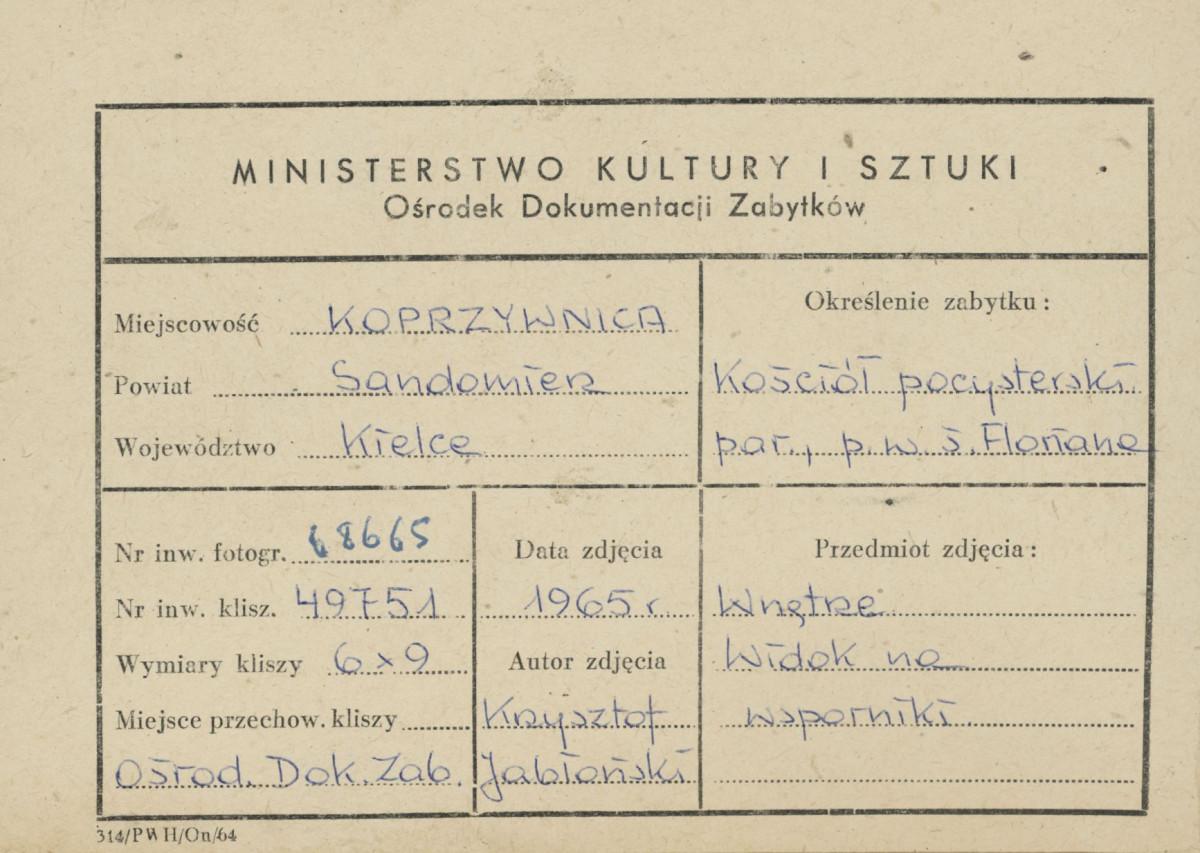 MINISTERSTWO KULTURY I SZTUKI
Ośrodek Dokumentacji Zabytków
Miejscowość KOPRZYWNICA
Powiat Sandomierz
Województwo Kielce
Określenie zabytku:
Kościół pocysterski
par., p.w. ś. Floriana
Nr inw. fotogr. 68665
Nr inw. klisz. 49751
Wymiary kliszy 6x9
Miejsce przechow. kliszy
Ośrod. Dok. Zab.
Data zdjęcia
1965 r.
Autor zdjęcia
Krzysztof
Jabłoński
Przedmiot zdjęcia:
Wnętrze
Widok na
wsporniki
314/PWH/On/64